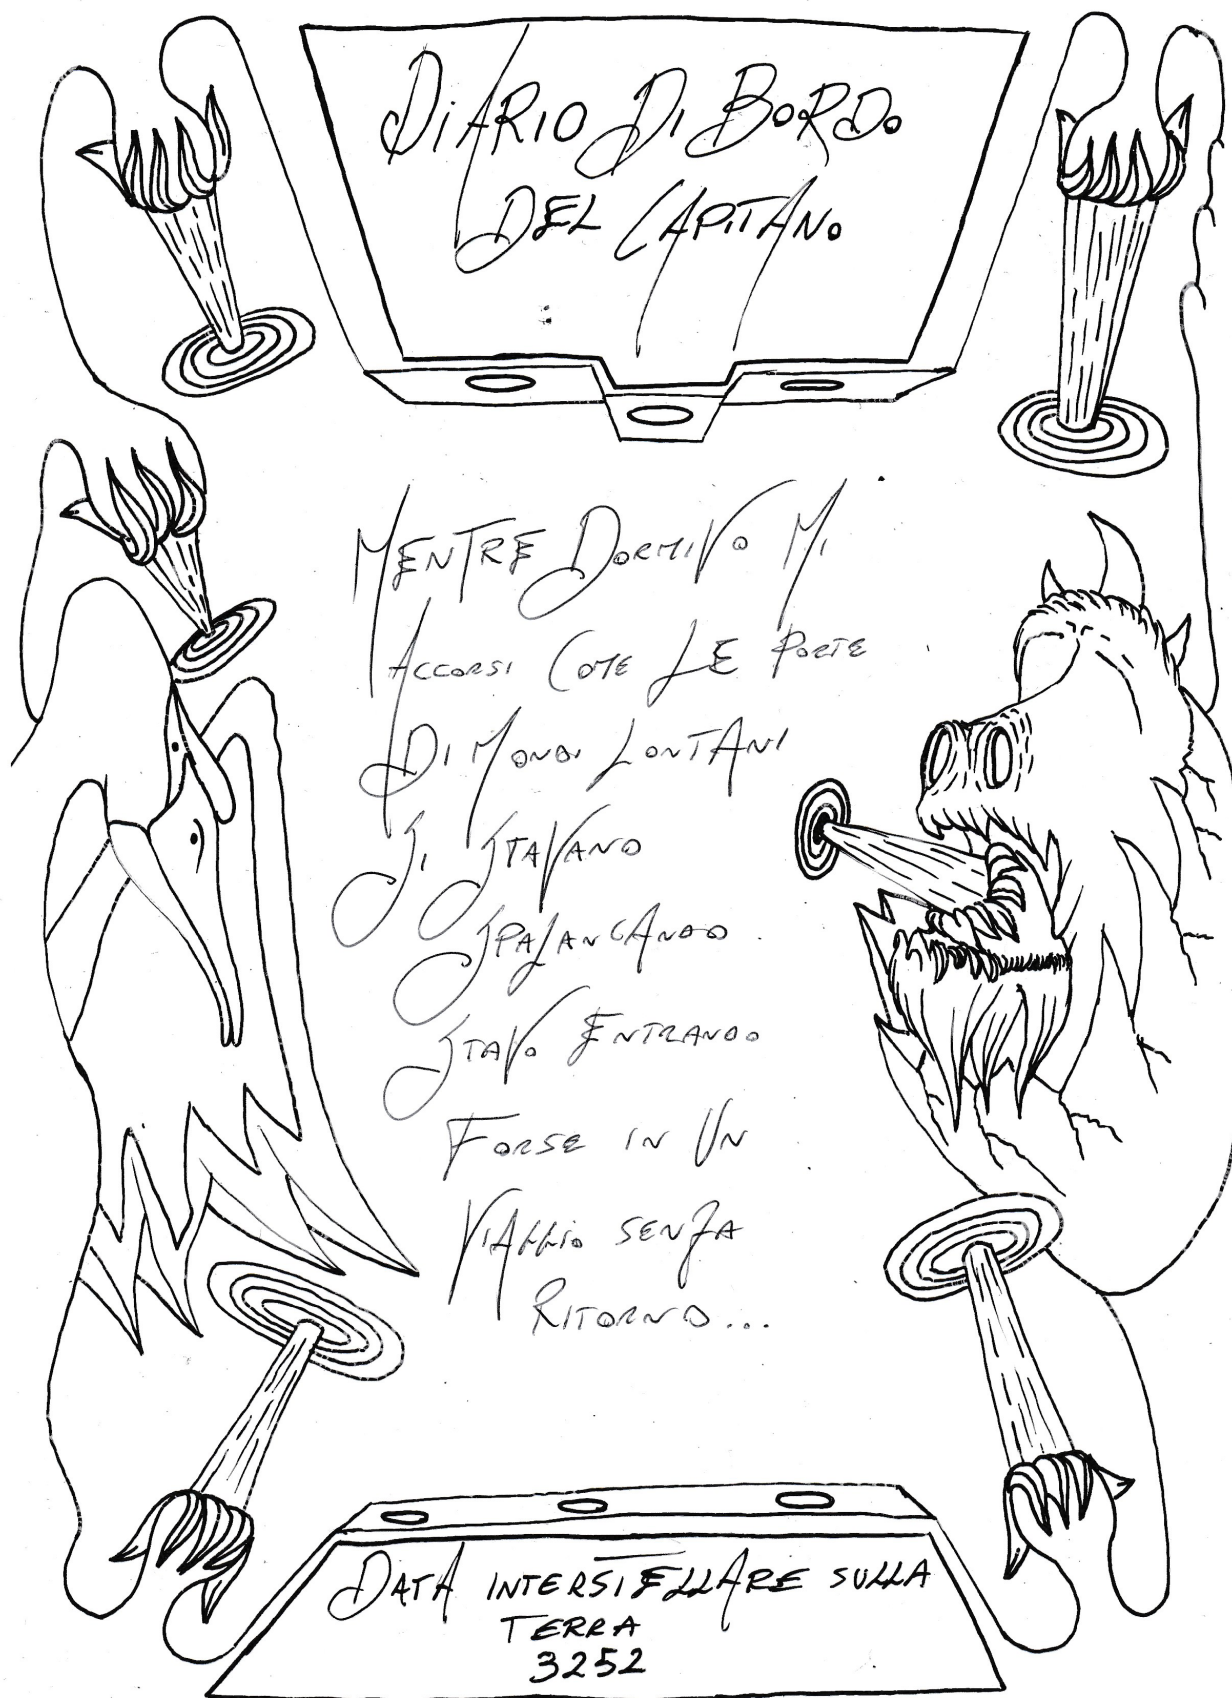 DIARIO DI BORDO
DEL CAPITANO
:
MENTRE DORMIVO MI
ACCORSI COME LE PORTE
DI MONDI LONTANI
SI STAVANO
SPALANCANDO.
STAVO ENTRANDO
FORSE IN UN
VIAGGIO SENZA
RITORNO...
DATA INTERSTELLARE SULLA
TERRA
3252